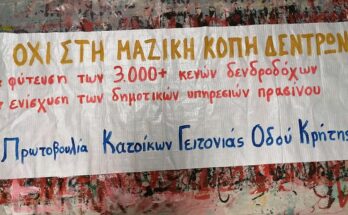 ΟΧΙ ΣΤΗ ΜΑΖΙΚΗ ΚΟΠΗ ΔΕΝΤΡΩΝ
* φύτευση των 3.000+ κενών δενδροδόχων
* ενίσχυση των δημοτικών υπηρεσιών πρασίνου
Πρωτοβουλία Κατοίκων Γειτονιάς Οδού Κρήτης